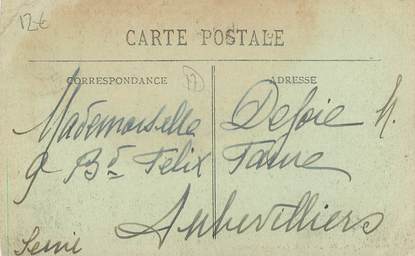 12€
CARTE POSTALE
CORRESPONDANCE
ADRESSE
Mademoiselle Defoie M.
9 Bd Felix Faure
Aubervilliers
Seine